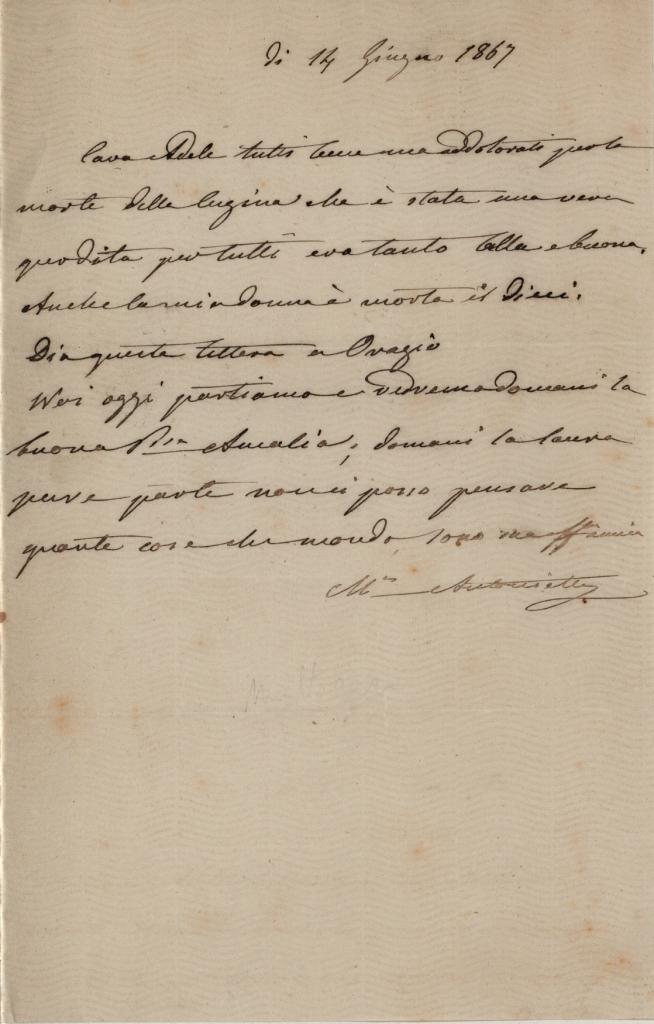 di 14 Giugno 1867
Cara Adele tutti bene ma addolorati per la
morte della Cugina che è stata una vera
perdita per tutti era tanto bella e buona.
Anche la mia donna è morta il Dieci.
Dia questa lettera a Orazio
Noi oggi partiamo e vedremo domani la
buona Amalia, domani la Laura
pure parte non ci posso pensare
quante cose che mondo, sono sua affma
Antonietta